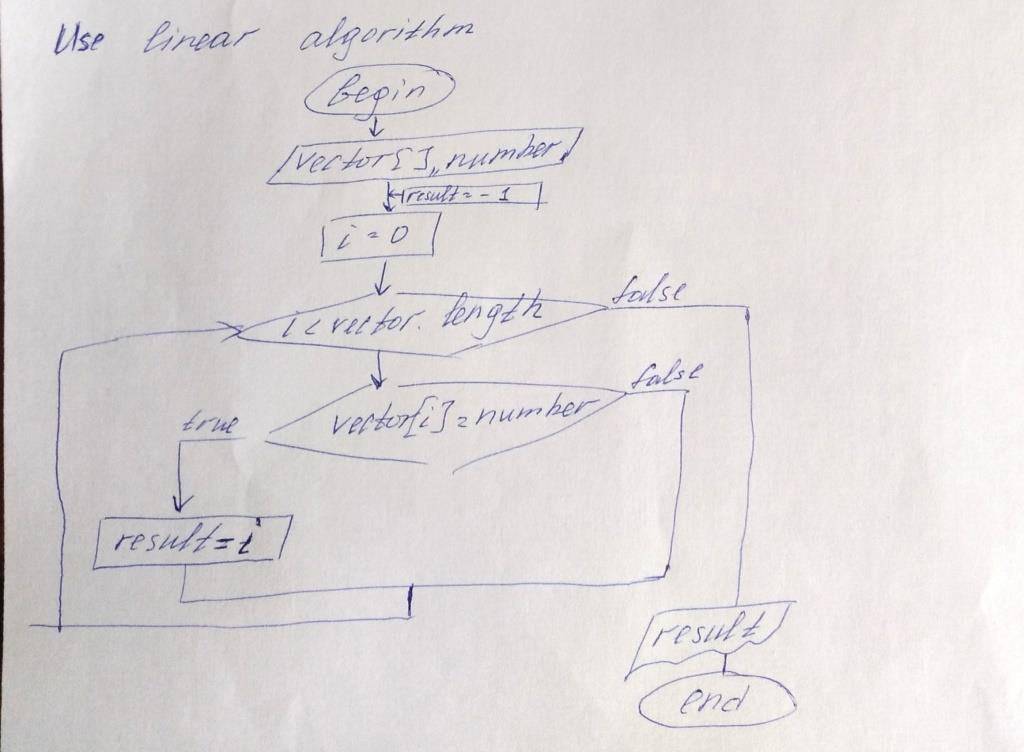 Use linear algorithm
begin
vector[],, number
result = - 1
i = 0
i < vector. length
false
vector[i] = number
false
true
result = i
result
end